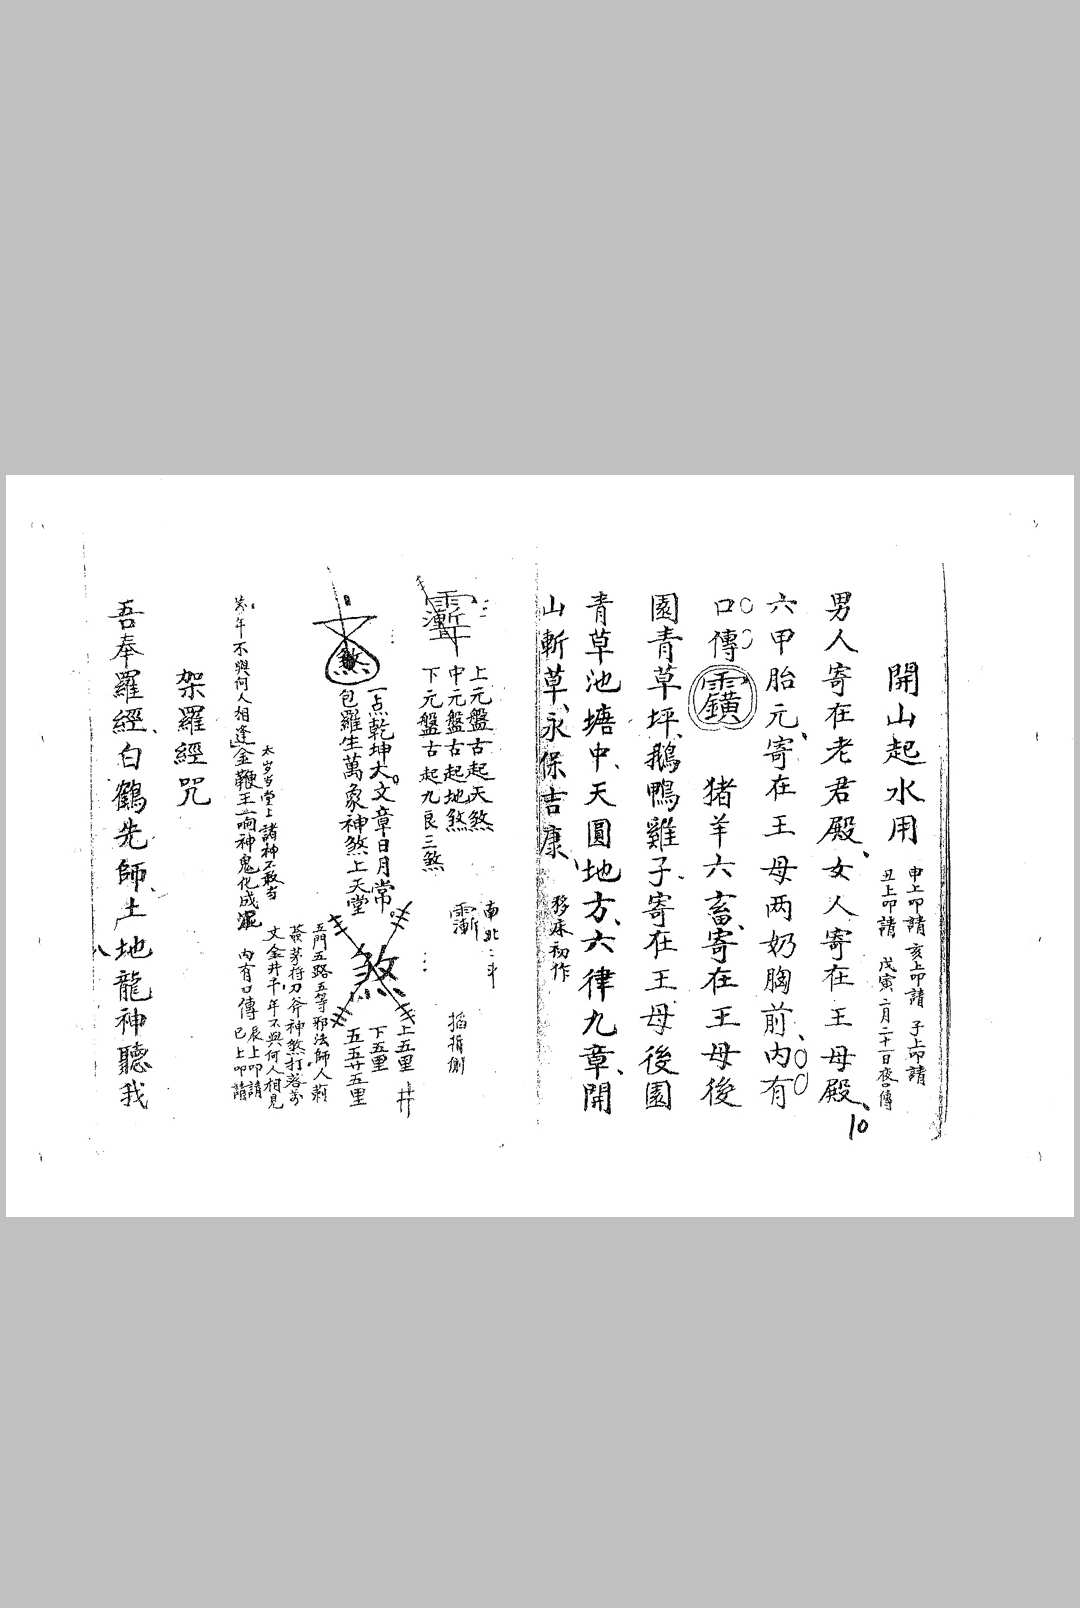 開山起水用
申上叩請 亥上叩請 子上叩請
丑上叩請 戊寅二月二十一日夜傳
男人寄在老君殿、女人寄在王母殿、
六甲胎元、寄在王母两奶胸前、内有
口傳
猪羊六畜、寄在王母後
園青草坪、鵝鴨雞子、寄在王母後園
青草池塘中、天圓地方、六律九章、開
山斬草、永保吉康、
移床初作
10
上元盤古起天煞
中元盤古起地煞
下元盤古起九良三煞
南北二斗
煞
一点乾坤大。文章日月常
包羅生萬象神煞上天堂
煞
上五里
下五里
五五廿五里
井
五門五路五等邪法師人
茅符刀斧神煞打落萬
丈金井千年不與何人相見
萬年不與何人相逢
太岁当堂上諸神不敢当
金鞭王一响神鬼化成泥
内有口傳
辰上叩請
巳上叩請
架羅經咒
吾奉羅經、白鶴先師、土地龍神聽我
八